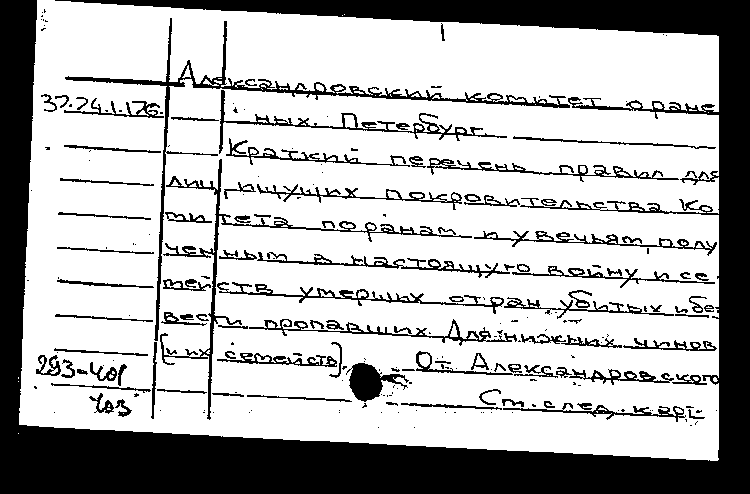 Александровский комитет о ране
37.24.1.176.
ных. Петербург
Краткий перечень правил для
лиц, ищущих покровительства Ко
митета по ранам и увечьям, полу
ченным в настоящую войну, и се
мейств умерших от ран, убитых и без
вести пропавших. Для нижних чинов
[и их семейств]. От Александровского
293-401
403
См. след. карт.